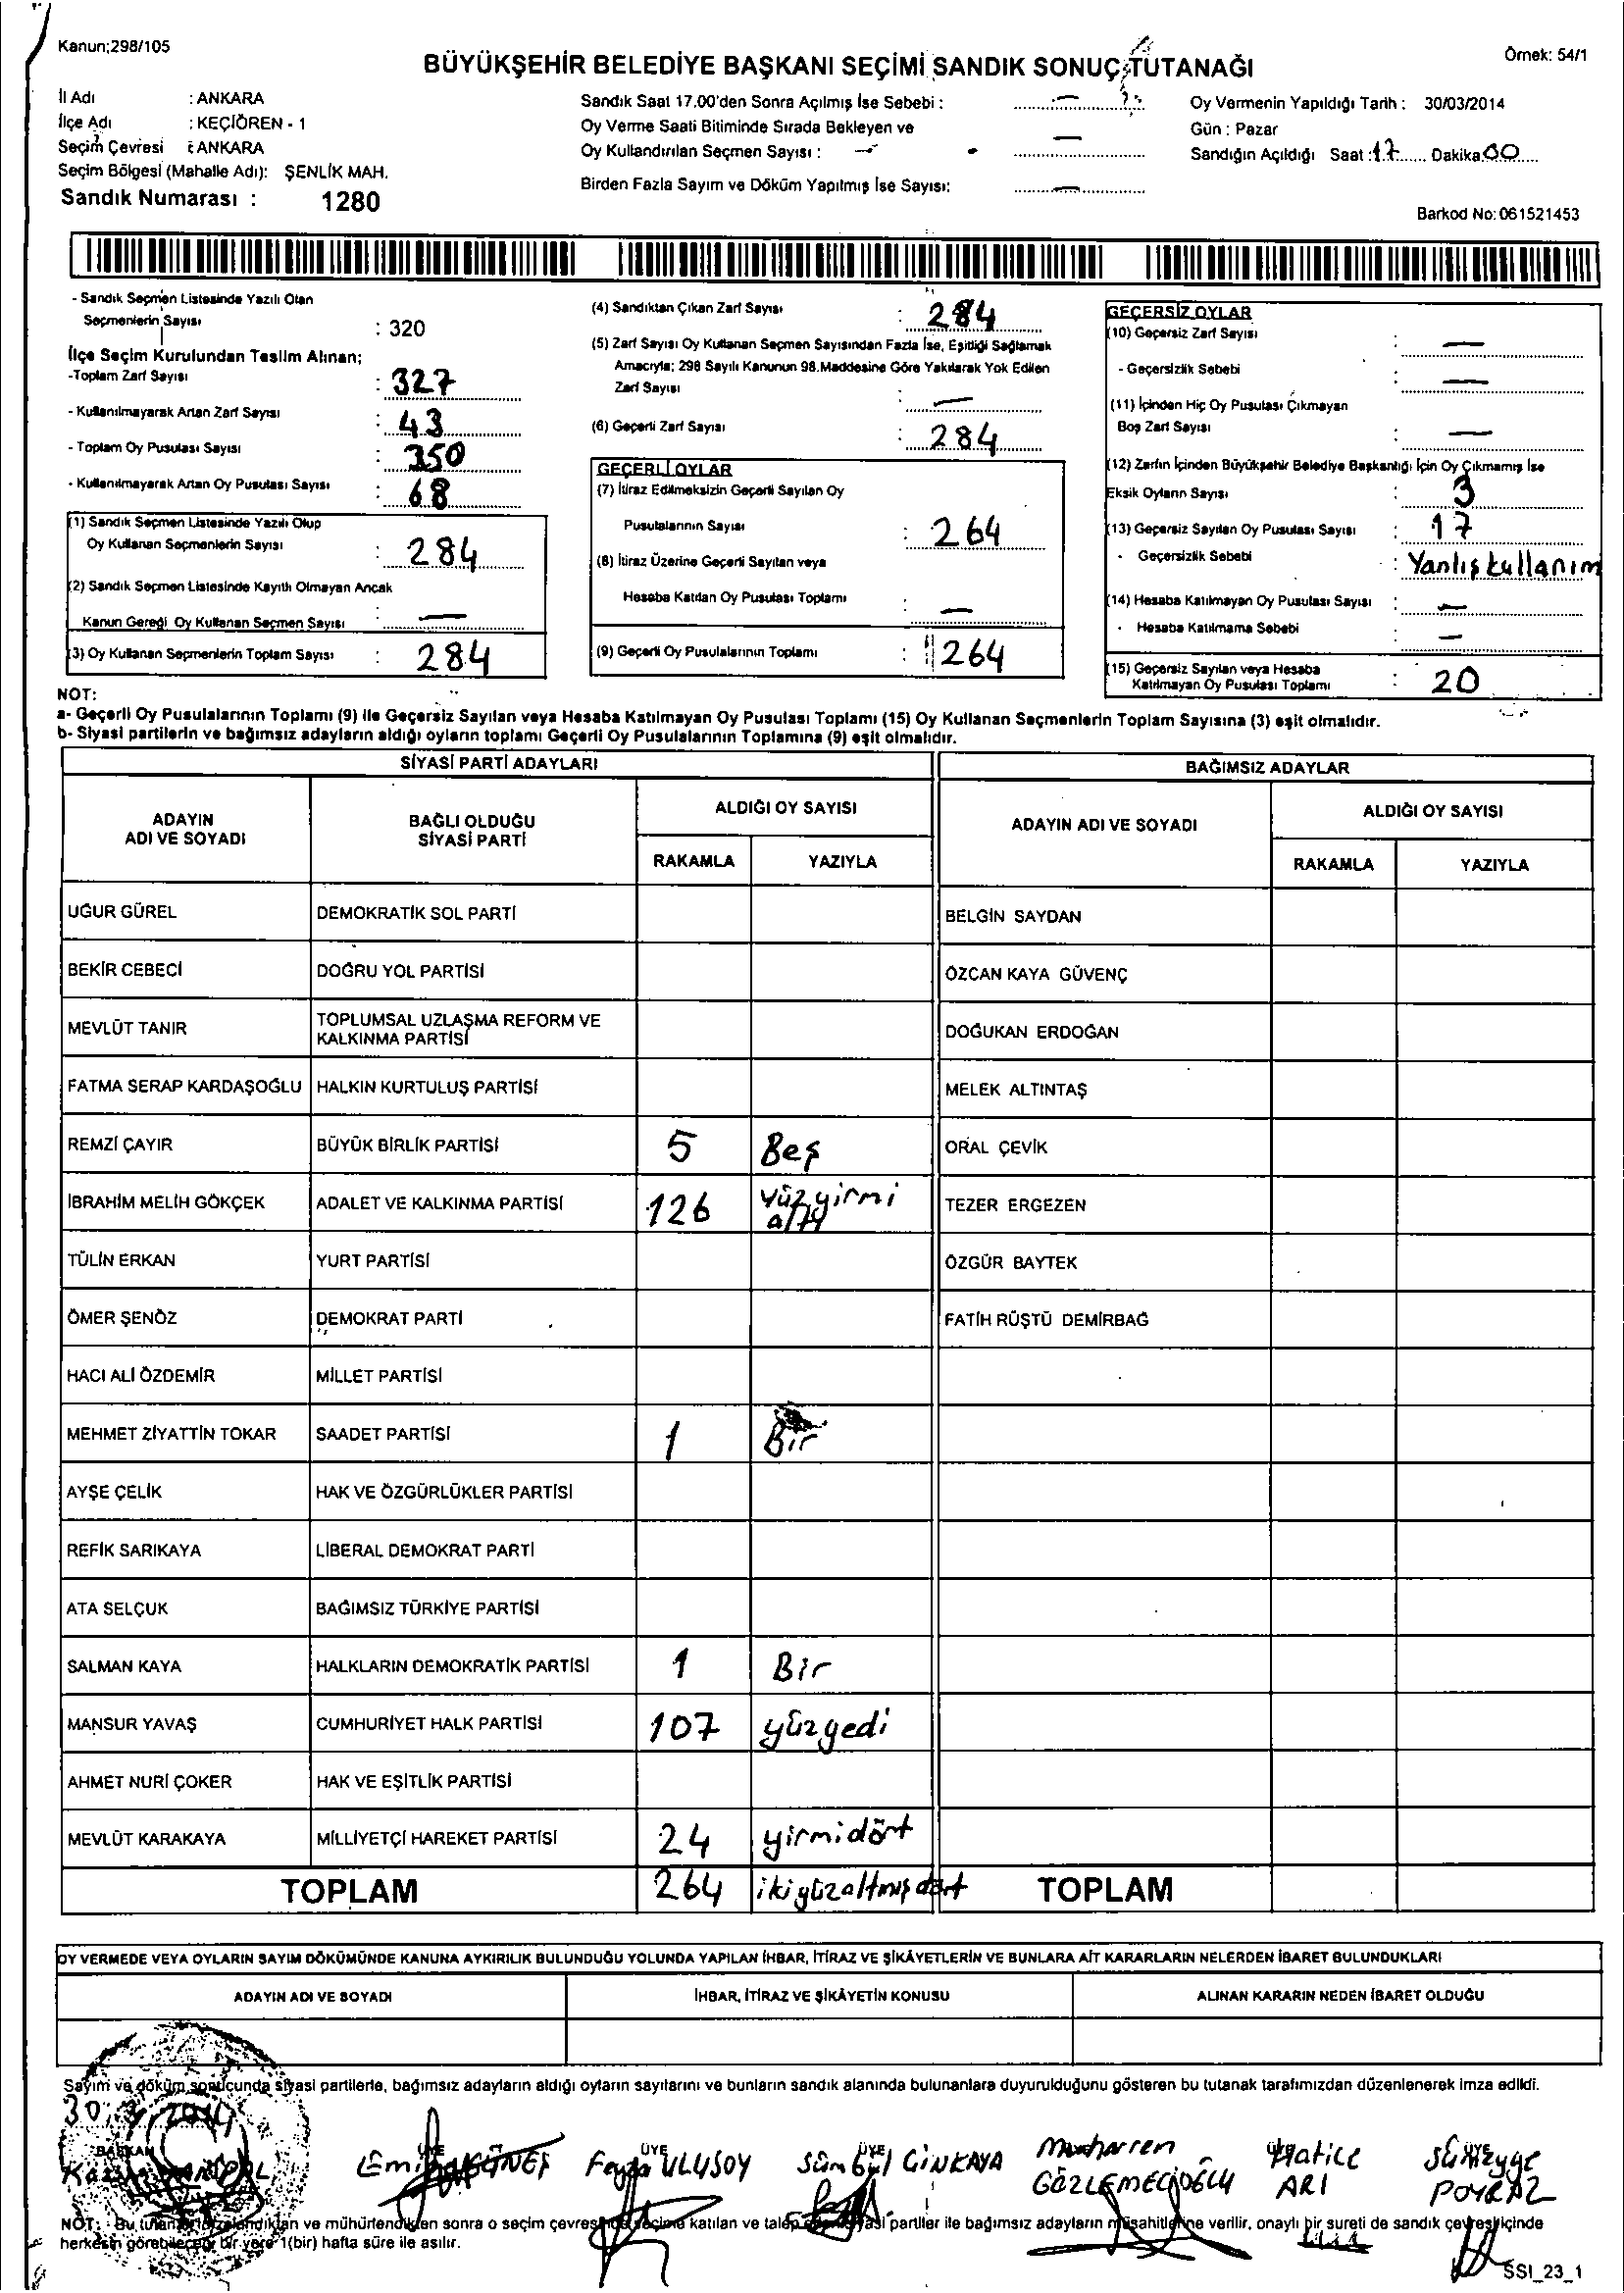 Kanun;298/105
Örnek: 54/1
BÜYÜKŞEHİR BELEDİYE BAŞKANI SEÇİMİ SANDIK SONUÇ TUTANAĞI
İl Adı : ANKARA
İlçe Adı : KEÇİÖREN - 1
Seçim Çevresi : ANKARA
Seçim Bölgesi (Mahalle Adı): ŞENLİK MAH.
Sandık Numarası : 1280
Sandık Saat 17.00'den Sonra Açılmış İse Sebebi : —
Oy Verme Saati Bitiminde Sırada Bekleyen ve
Oy Kullandırılan Seçmen Sayısı : —
Birden Fazla Sayım ve Döküm Yapılmış İse Sayısı: —
Oy Vermenin Yapıldığı Tarih : 30/03/2014
Gün : Pazar
Sandığın Açıldığı Saat :17 Dakika:00
Barkod No: 061521453
- Sandık Seçmen Listesinde Yazılı Olan
Seçmenlerin Sayısı : 320
İlçe Seçim Kurulundan Teslim Alınan;
-Toplam Zarf Sayısı : 327
- Kullanılmayarak Artan Zarf Sayısı : 43
- Toplam Oy Pusulası Sayısı : 350
- Kullanılmayarak Artan Oy Pusulası Sayısı : 68
(1) Sandık Seçmen Listesinde Yazılı Olup
Oy Kullanan Seçmenlerin Sayısı : 284
(2) Sandık Seçmen Listesinde Kayıtlı Olmayan Ancak
Kanun Gereği Oy Kullanan Seçmen Sayısı : —
(3) Oy Kullanan Seçmenlerin Toplam Sayısı : 284
(4) Sandıktan Çıkan Zarf Sayısı : 284
(5) Zarf Sayısı Oy Kullanan Seçmen Sayısından Fazla İse, Eşitliği Sağlamak
Amacıyla; 298 Sayılı Kanunun 98.Maddesine Göre Yakılarak Yok Edilen
Zarf Sayısı : —
(6) Geçerli Zarf Sayısı : 284
GEÇERLİ OYLAR
(7) İtiraz Edilmeksizin Geçerli Sayılan Oy
Pusulalarının Sayısı : 264
(8) İtiraz Üzerine Geçerli Sayılan veya
Hesaba Katılan Oy Pusulası Toplamı : —
(9) Geçerli Oy Pusulalarının Toplamı : 264
GEÇERSİZ OYLAR
(10) Geçersiz Zarf Sayısı : —
- Geçersizlik Sebebi : —
(11) İçinden Hiç Oy Pusulası Çıkmayan
Boş Zarf Sayısı : —
(12) Zarfın İçinden Büyükşehir Belediye Başkanlığı İçin Oy Çıkmamış İse
Eksik Oyların Sayısı : 3
(13) Geçersiz Sayılan Oy Pusulası Sayısı : 17
- Geçersizlik Sebebi : Yanlış kullanım
(14) Hesaba Katılmayan Oy Pusulası Sayısı : —
- Hesaba Katılmama Sebebi : —
(15) Geçersiz Sayılan veya Hesaba
Katılmayan Oy Pusulası Toplamı : 20
NOT:
a- Geçerli Oy Pusulalarının Toplamı (9) ile Geçersiz Sayılan veya Hesaba Katılmayan Oy Pusulası Toplamı (15) Oy Kullanan Seçmenlerin Toplam Sayısına (3) eşit olmalıdır.
b- Siyasi partilerin ve bağımsız adayların aldığı oyların toplamı Geçerli Oy Pusulalarının Toplamına (9) eşit olmalıdır.
SİYASİ PARTİ ADAYLARI BAĞIMSIZ ADAYLAR
ADAYIN ADI VE SOYADI BAĞLI OLDUĞU SİYASİ PARTİ ALDIĞI OY SAYISI ADAYIN ADI VE SOYADI ALDIĞI OY SAYISI
RAKAMLA YAZIYLA RAKAMLA YAZIYLA
UĞUR GÜREL DEMOKRATİK SOL PARTİ BELGİN SAYDAN
BEKİR CEBECİ DOĞRU YOL PARTİSİ ÖZCAN KAYA GÜVENÇ
MEVLÜT TANIR TOPLUMSAL UZLAŞMA REFORM VE KALKINMA PARTİSİ DOĞUKAN ERDOĞAN
FATMA SERAP KARDAŞOĞLU HALKIN KURTULUŞ PARTİSİ MELEK ALTINTAŞ
REMZİ ÇAYIR BÜYÜK BİRLİK PARTİSİ 5 Beş ORAL ÇEVİK
İBRAHİM MELİH GÖKÇEK ADALET VE KALKINMA PARTİSİ 126 yüzyirmi altı TEZER ERGEZEN
TÜLİN ERKAN YURT PARTİSİ ÖZGÜR BAYTEK
ÖMER ŞENÖZ DEMOKRAT PARTİ FATİH RÜŞTÜ DEMİRBAĞ
HACI ALİ ÖZDEMİR MİLLET PARTİSİ
MEHMET ZİYATTİN TOKAR SAADET PARTİSİ 1 Bir
AYŞE ÇELİK HAK VE ÖZGÜRLÜKLER PARTİSİ
REFİK SARIKAYA LİBERAL DEMOKRAT PARTİ
ATA SELÇUK BAĞIMSIZ TÜRKİYE PARTİSİ
SALMAN KAYA HALKLARIN DEMOKRATİK PARTİSİ 1 Bir
MANSUR YAVAŞ CUMHURİYET HALK PARTİSİ 107 yüzyedi
AHMET NURİ ÇOKER HAK VE EŞİTLİK PARTİSİ
MEVLÜT KARAKAYA MİLLİYETÇİ HAREKET PARTİSİ 24 yirmidört
TOPLAM 264 ikiyüzaltmışdört TOPLAM
OY VERMEDE VEYA OYLARIN SAYIM DÖKÜMÜNDE KANUNA AYKIRILIK BULUNDUĞU YOLUNDA YAPILAN İHBAR, İTİRAZ VE ŞİKÂYETLERİN VE BUNLARA AİT KARARLARIN NELERDEN İBARET BULUNDUKLARI
ADAYIN ADI VE SOYADI İHBAR, İTİRAZ VE ŞİKÂYETİN KONUSU ALINAN KARARIN NEDEN İBARET OLDUĞU
Sayım ve döküm sonucunda siyasi partilerle, bağımsız adayların aldığı oyların sayılarını ve bunların sandık alanında bulunanlara duyurulduğunu gösteren bu tutanak tarafımızdan düzenlenerek imza edildi.
30.3.2014
BAŞKAN ÜYE ÜYE ÜYE ÜYE ÜYE
GÜNEŞ ULUSOY Sümbül GİNKAYA Muharrem GÖZLEMECİOĞLU Hatice ARI Sümeyye POYRAZ
NOT: Bu tutanak düzenlendikten ve mühürlendikten sonra o seçim çevresinde seçime katılan ve talep eden siyasi partiler ile bağımsız adayların müşahitlerine verilir, onaylı bir sureti de sandık çevresi içinde
herkesin görebileceği bir yere 1(bir) hafta süre ile asılır.
SSI_23_1